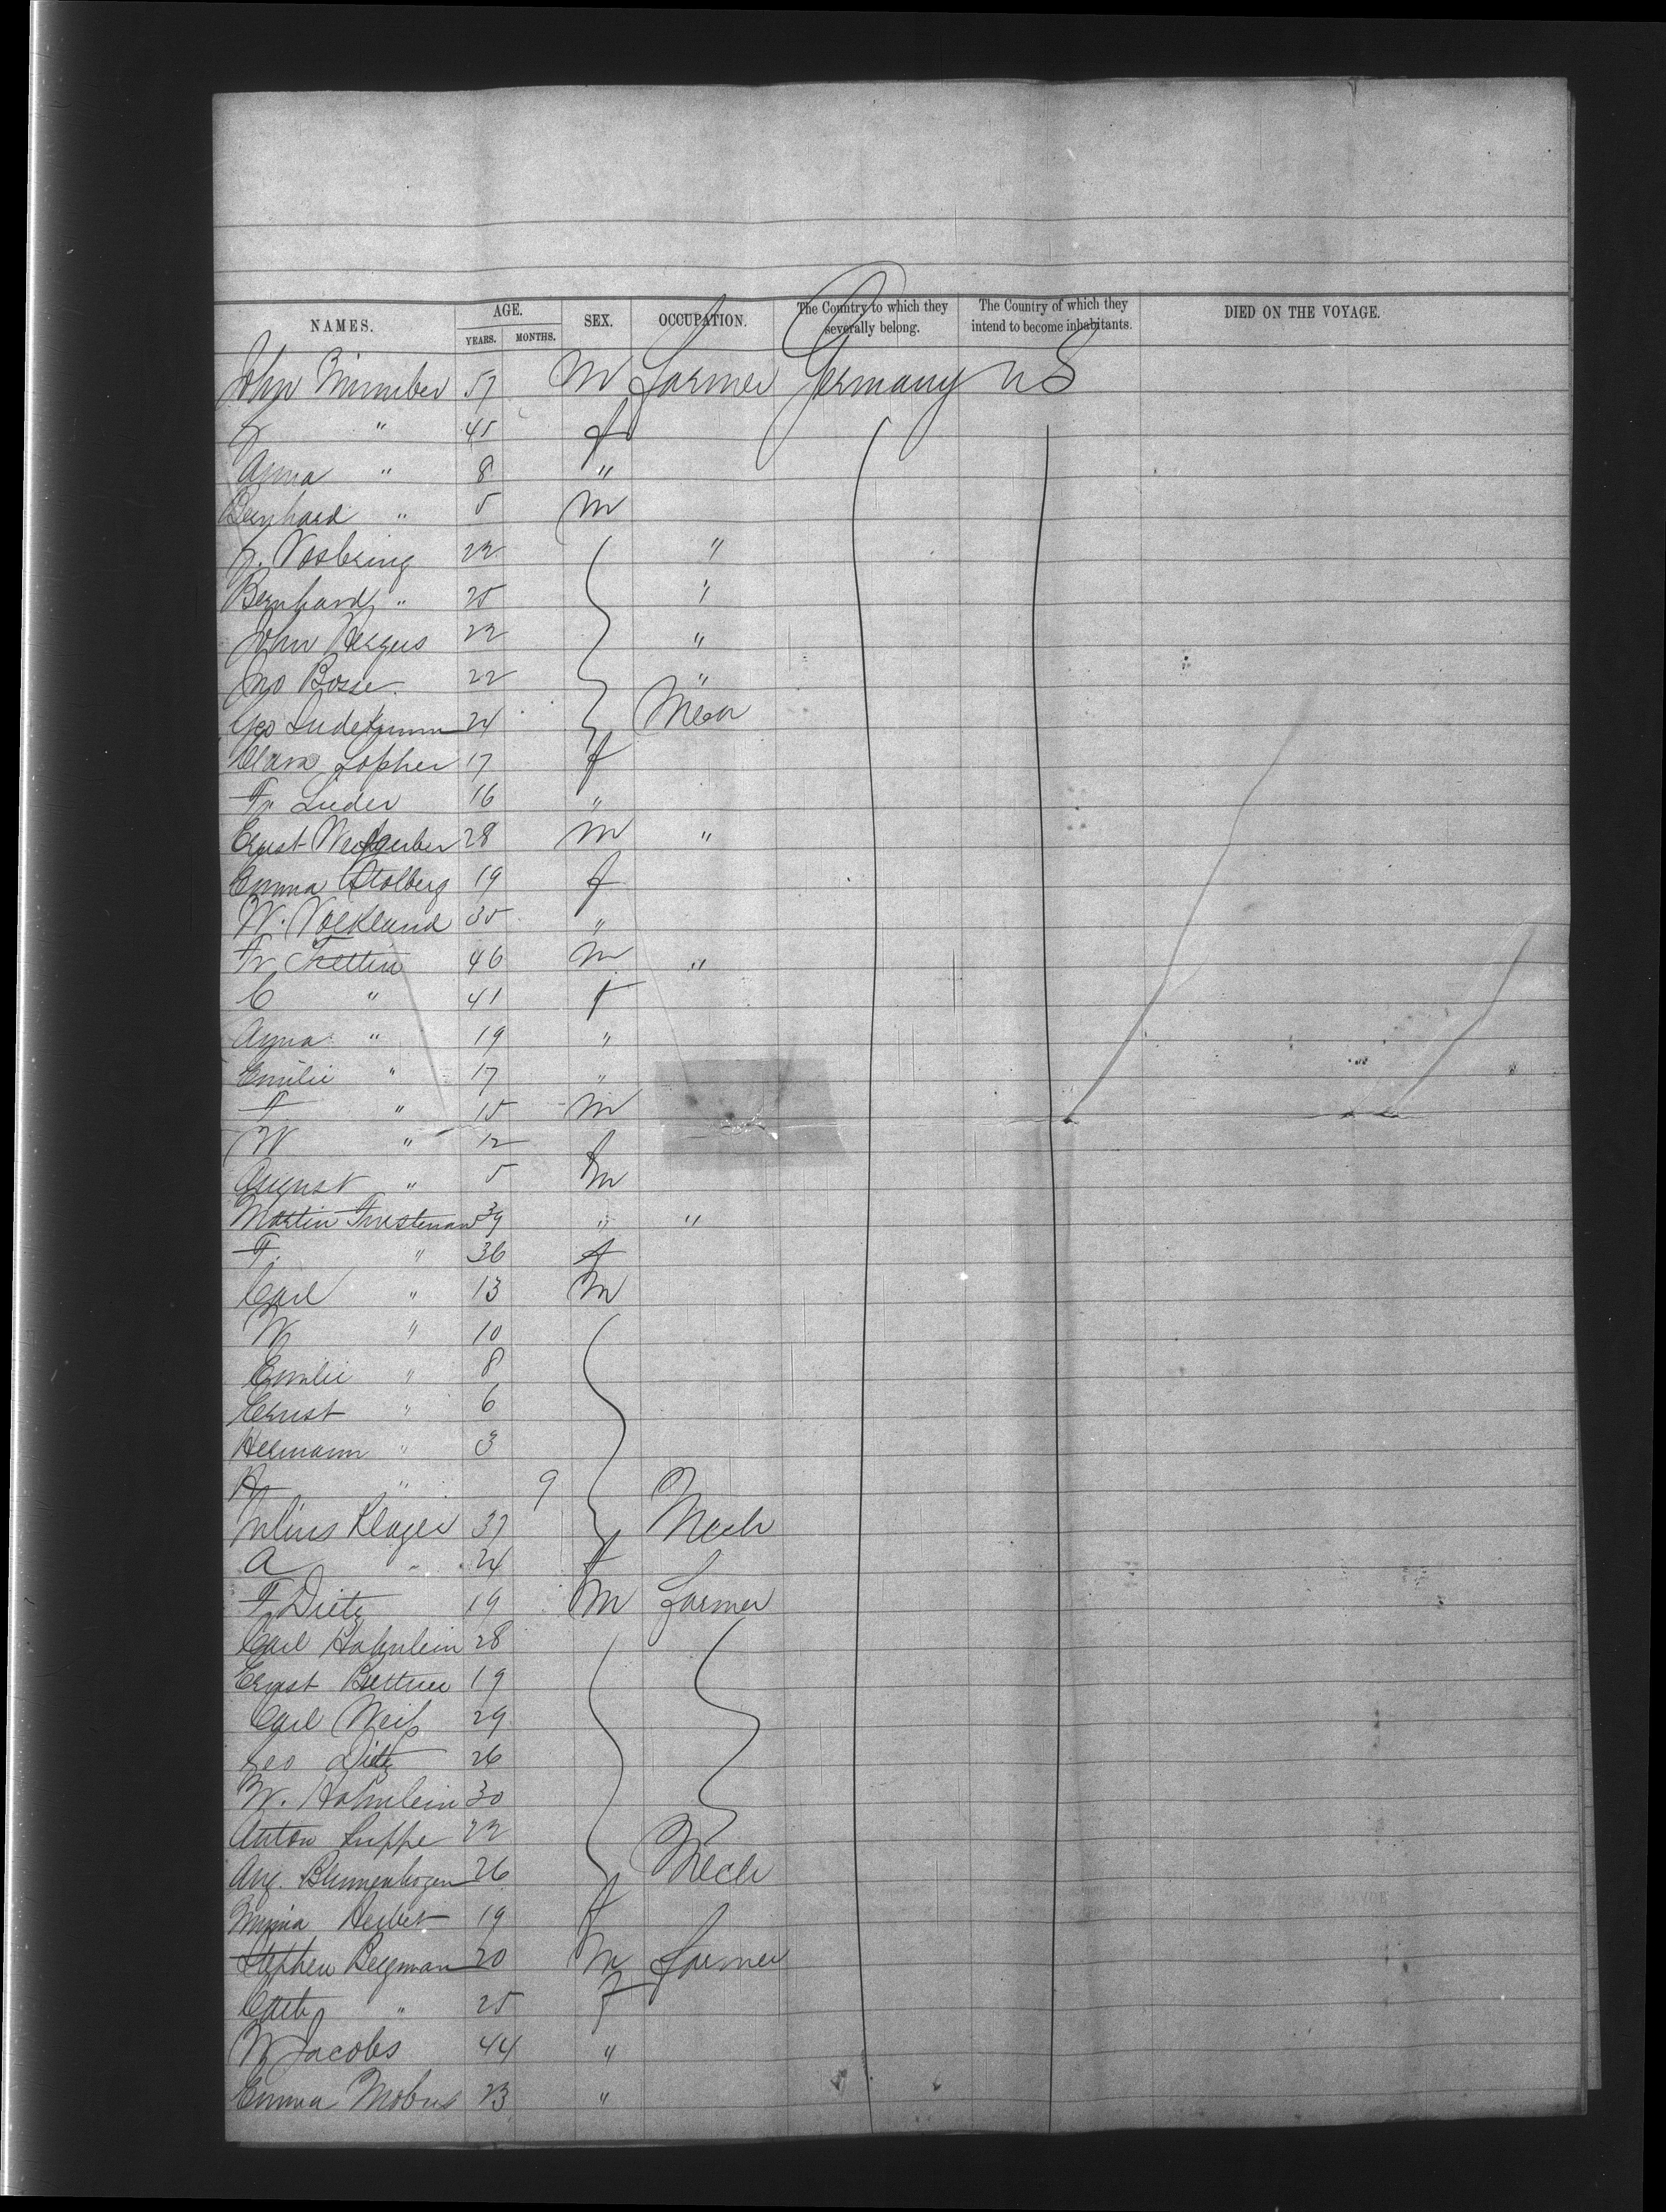 NAMES. AGE. YEARS. MONTHS. SEX. OCCUPATION. The Country to which they severally belong. The Country of which they intend to become inhabitants. DIED ON THE VOYAGE.
John 57 M Farmer Germany U S
" 45 f
Anna " 8 "
Bernhard " 5 M
J. Vosbring 22 "
Bernhard " 25 "
John 22 "
Jno Bosse 22 "
Geo 24
Clara Lopher 17 f
Fr Luder 16 "
Ernst 28 M "
Emma Stolberg 19 f
W. 35 "
Fr Trettin 46 M "
C " 41 f
Anna " 19 "
Emilie " 17 "
F " 15 M
W " 12
August " 5 M
Martin 39 " "
F. " 36 f
Carl " 13 M
W " 10
Emilie " 8
Ernst " 6
Hermann " 3
H " 9
Julius Klager 37 Mech
A " 24 f
F Dietz 19 M Farmer
Carl Hahnlein 28
Ernst Buttner 19
Carl Weiß 29
Geo Dietz 26
W. Hahnlein 30
Anton Luppe 22
Aug. Blumenhagen 26 Mech
Minna Herbet 19 f
Stephen Bergman 20 M Farmer
Cath " 25 f
W Jacobs 44 "
Emma Mobus 23 "